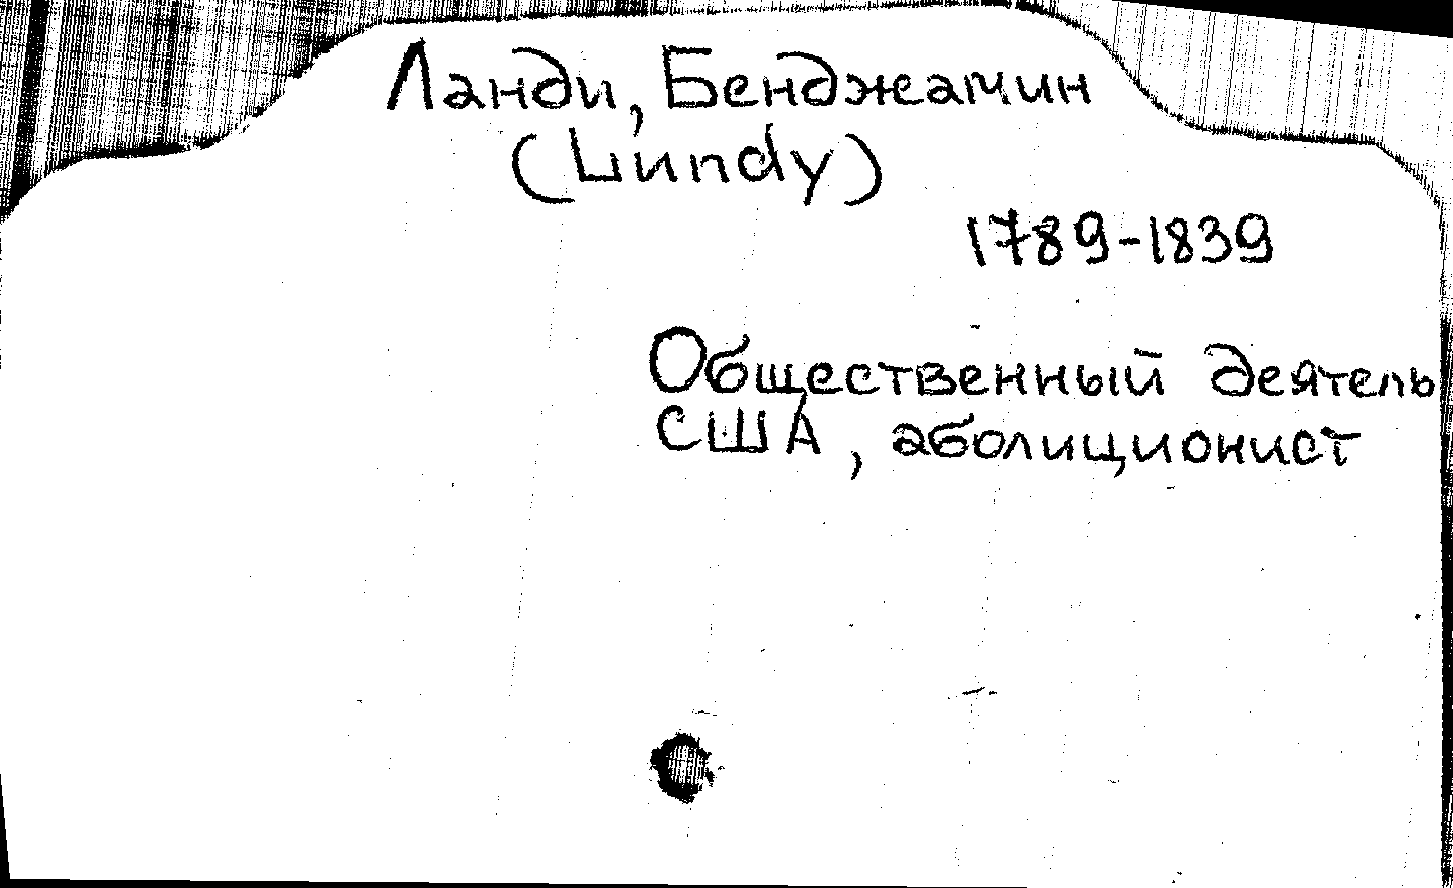 Ланди, Бенджамин
(Lundy)
1789-1839
Общественный деятель
США, аболиционист